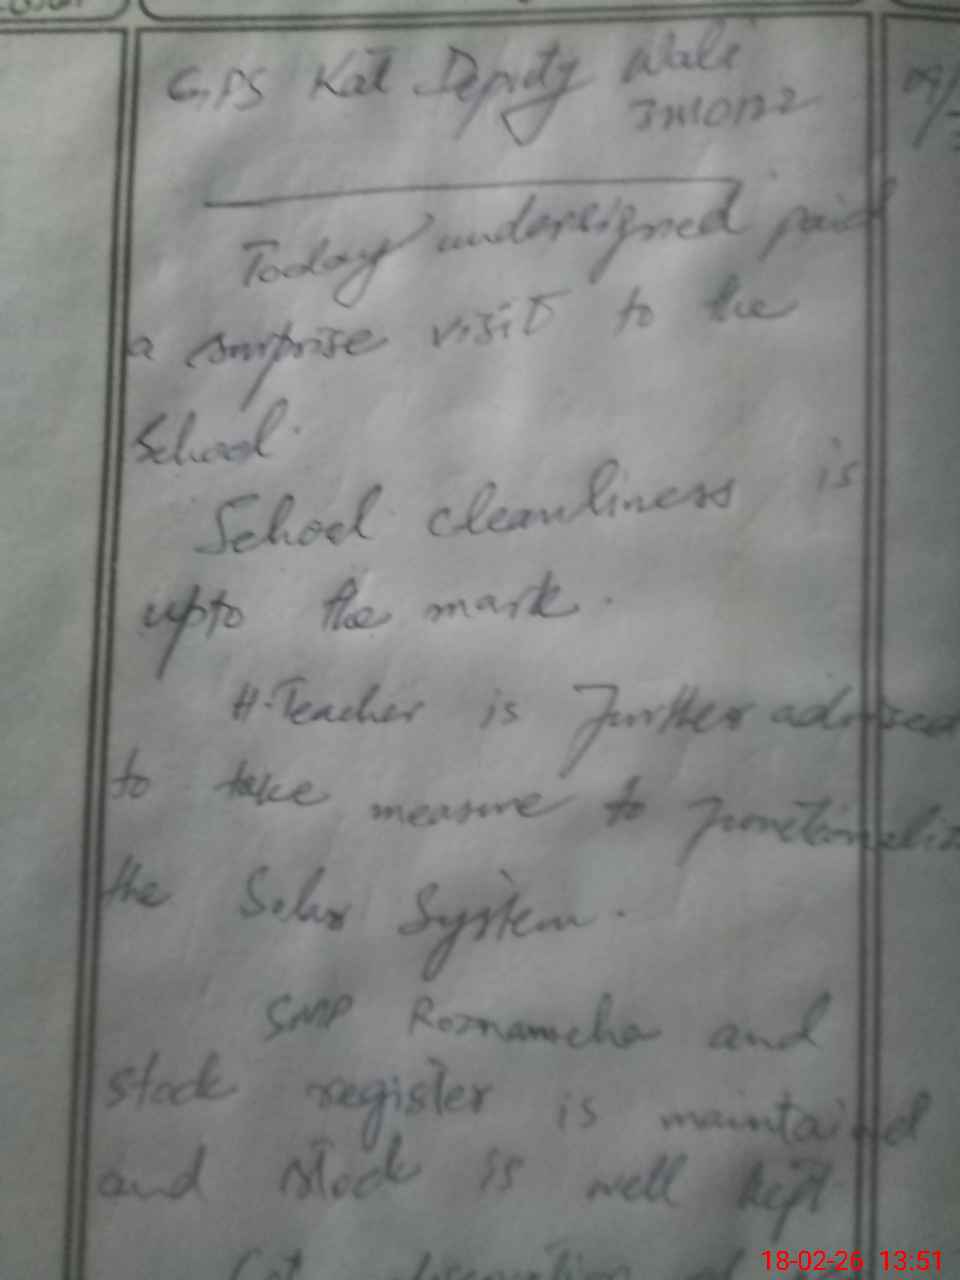 GPS Kat Deputy Wali
Today undersigned paid
a surprise visit to the
School.
School cleanliness is
upto the mark.
H.Teacher is further advised
to take measure to
the Solar System.
SMP Roznamcha and
stock register is maintained
and stock is well kept
18-02-26 13:51